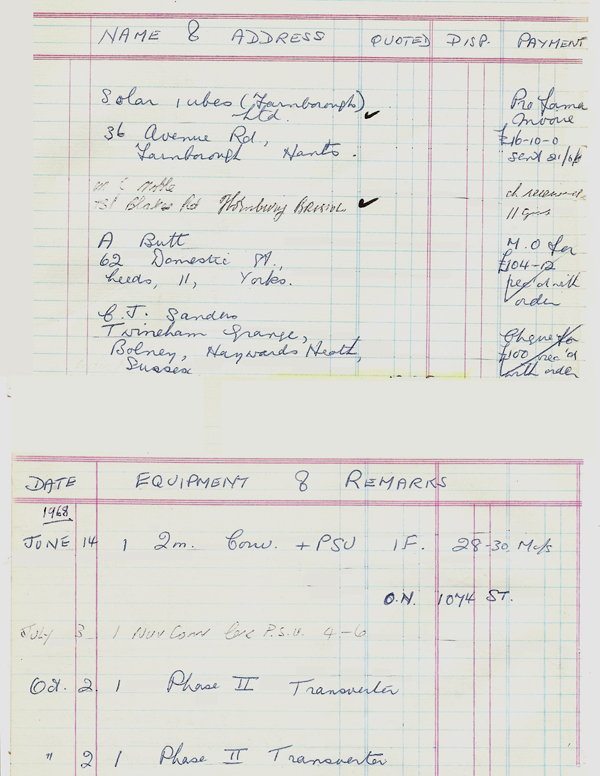 NAME & ADDRESS QUOTED DISP. PAYMENT
Solar Tubes (Farnborough) Ltd. ✓ Pro forma
Invoice
36 Avenue Rd, £16-10-0
Farnborough Hants. sent
ch received
Rd Thornbury BRISTOL ✓ 11 gns
A Butt M.O for
62 Domestic St., £104-12
Leeds, 11, Yorks. rec'd with
order
C.J. Sanders
Twineham Grange, Cheque for
Bolney, Haywards Heath, £100 rec'd
Sussex with order
DATE EQUIPMENT & REMARKS
1968
JUNE 14 1 2m. Conv. + PSU IF. 28-30 Mc/s
O.N. 1074 ST.
July 3 1 Nuv Conv P.S.U. 4-6
Oct. 2. 1 Phase II Transverter
" 2 1 Phase II Transverter